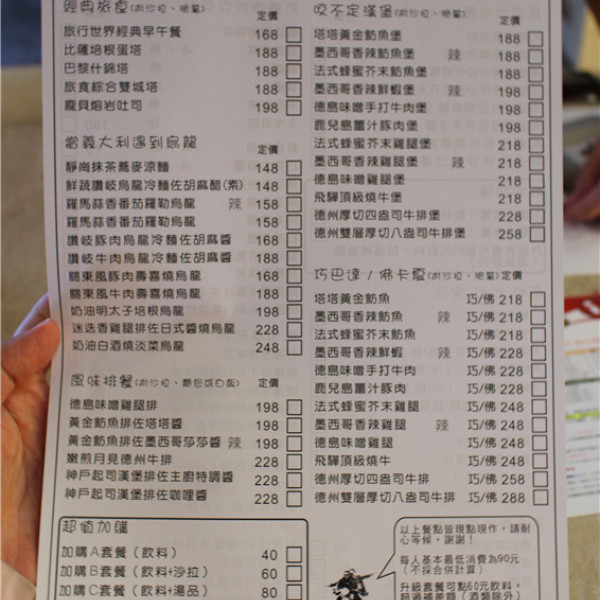 經典旅食(附沙拉、脆薯) 定價
旅行世界經典早午餐 168
比薩培根蛋塔 188
巴黎什錦塔 188
旅食綜合雙城塔 188
龐貝熔岩吐司 198
當義大利遇到烏龍 定價
靜崗抹茶蕎麥涼麵 148
鮮蔬讚岐烏龍冷麵佐胡麻醋(素) 148
羅馬蒜香番茄羅勒烏龍 辣 158
羅馬蒜香番茄羅勒烏龍 158
讚岐豚肉烏龍冷麵佐胡麻醬 168
讚岐牛肉烏龍冷麵佐胡麻醬 188
關東風豚肉壽喜燒烏龍 168
關東風牛肉壽喜燒烏龍 188
奶油明太子培根烏龍 198
迷迭香雞腿排佐日式醬燒烏龍 228
奶油白酒燒淡菜烏龍 248
風味排餐 定價
德島味噌雞腿排 198
黃金魴魚排佐塔塔醬 198
黃金魴魚排佐墨西哥莎莎醬 辣 198
嫩煎月見德州牛排 228
神戶起司漢堡排佐主廚特調醬 228
神戶起司漢堡排佐咖哩醬 228
超值加購
加購A套餐（飲料） 40
加購B套餐（飲料+沙拉） 60
加購C套餐（飲料+湯品） 80
咬不定漢堡(附沙拉、脆薯) 定價
塔塔黃金魴魚堡 188
墨西哥香辣魴魚堡 辣 188
法式蜂蜜芥末魴魚堡 188
墨西哥香辣鮮蝦堡 辣 198
德島味噌手打牛肉堡 198
鹿兒島薑汁豚肉堡 198
法式蜂蜜芥末雞腿堡 218
墨西哥香辣雞腿堡 辣 218
德島味噌雞腿堡 218
飛驒頂級燒牛堡 218
德州厚切四盎司牛排堡 228
德州雙層厚切八盎司牛排堡 258
巧巴達/佛卡夏(附沙拉、脆薯)定價
塔塔黃金魴魚 巧/佛 218
墨西哥香辣魴魚 辣 巧/佛 218
法式蜂蜜芥末魴魚 巧/佛 218
墨西哥香辣鮮蝦 辣 巧/佛 228
德島味噌手打牛肉 巧/佛 228
鹿兒島薑汁豚肉 巧/佛 228
法式蜂蜜芥末雞腿 巧/佛 248
墨西哥香辣雞腿 辣 巧/佛 248
德島味噌雞腿 巧/佛 248
飛驒頂級燒牛 巧/佛 248
德州厚切四盎司牛排 巧/佛 258
德州雙層厚切八盎司牛排 巧/佛 288
以上餐點皆現點現作，請耐
心等候，謝謝！
每人基本最低消費為90元
（不採合併計算）
升級套餐可點60元飲料，
超過補差額（酒類除外）